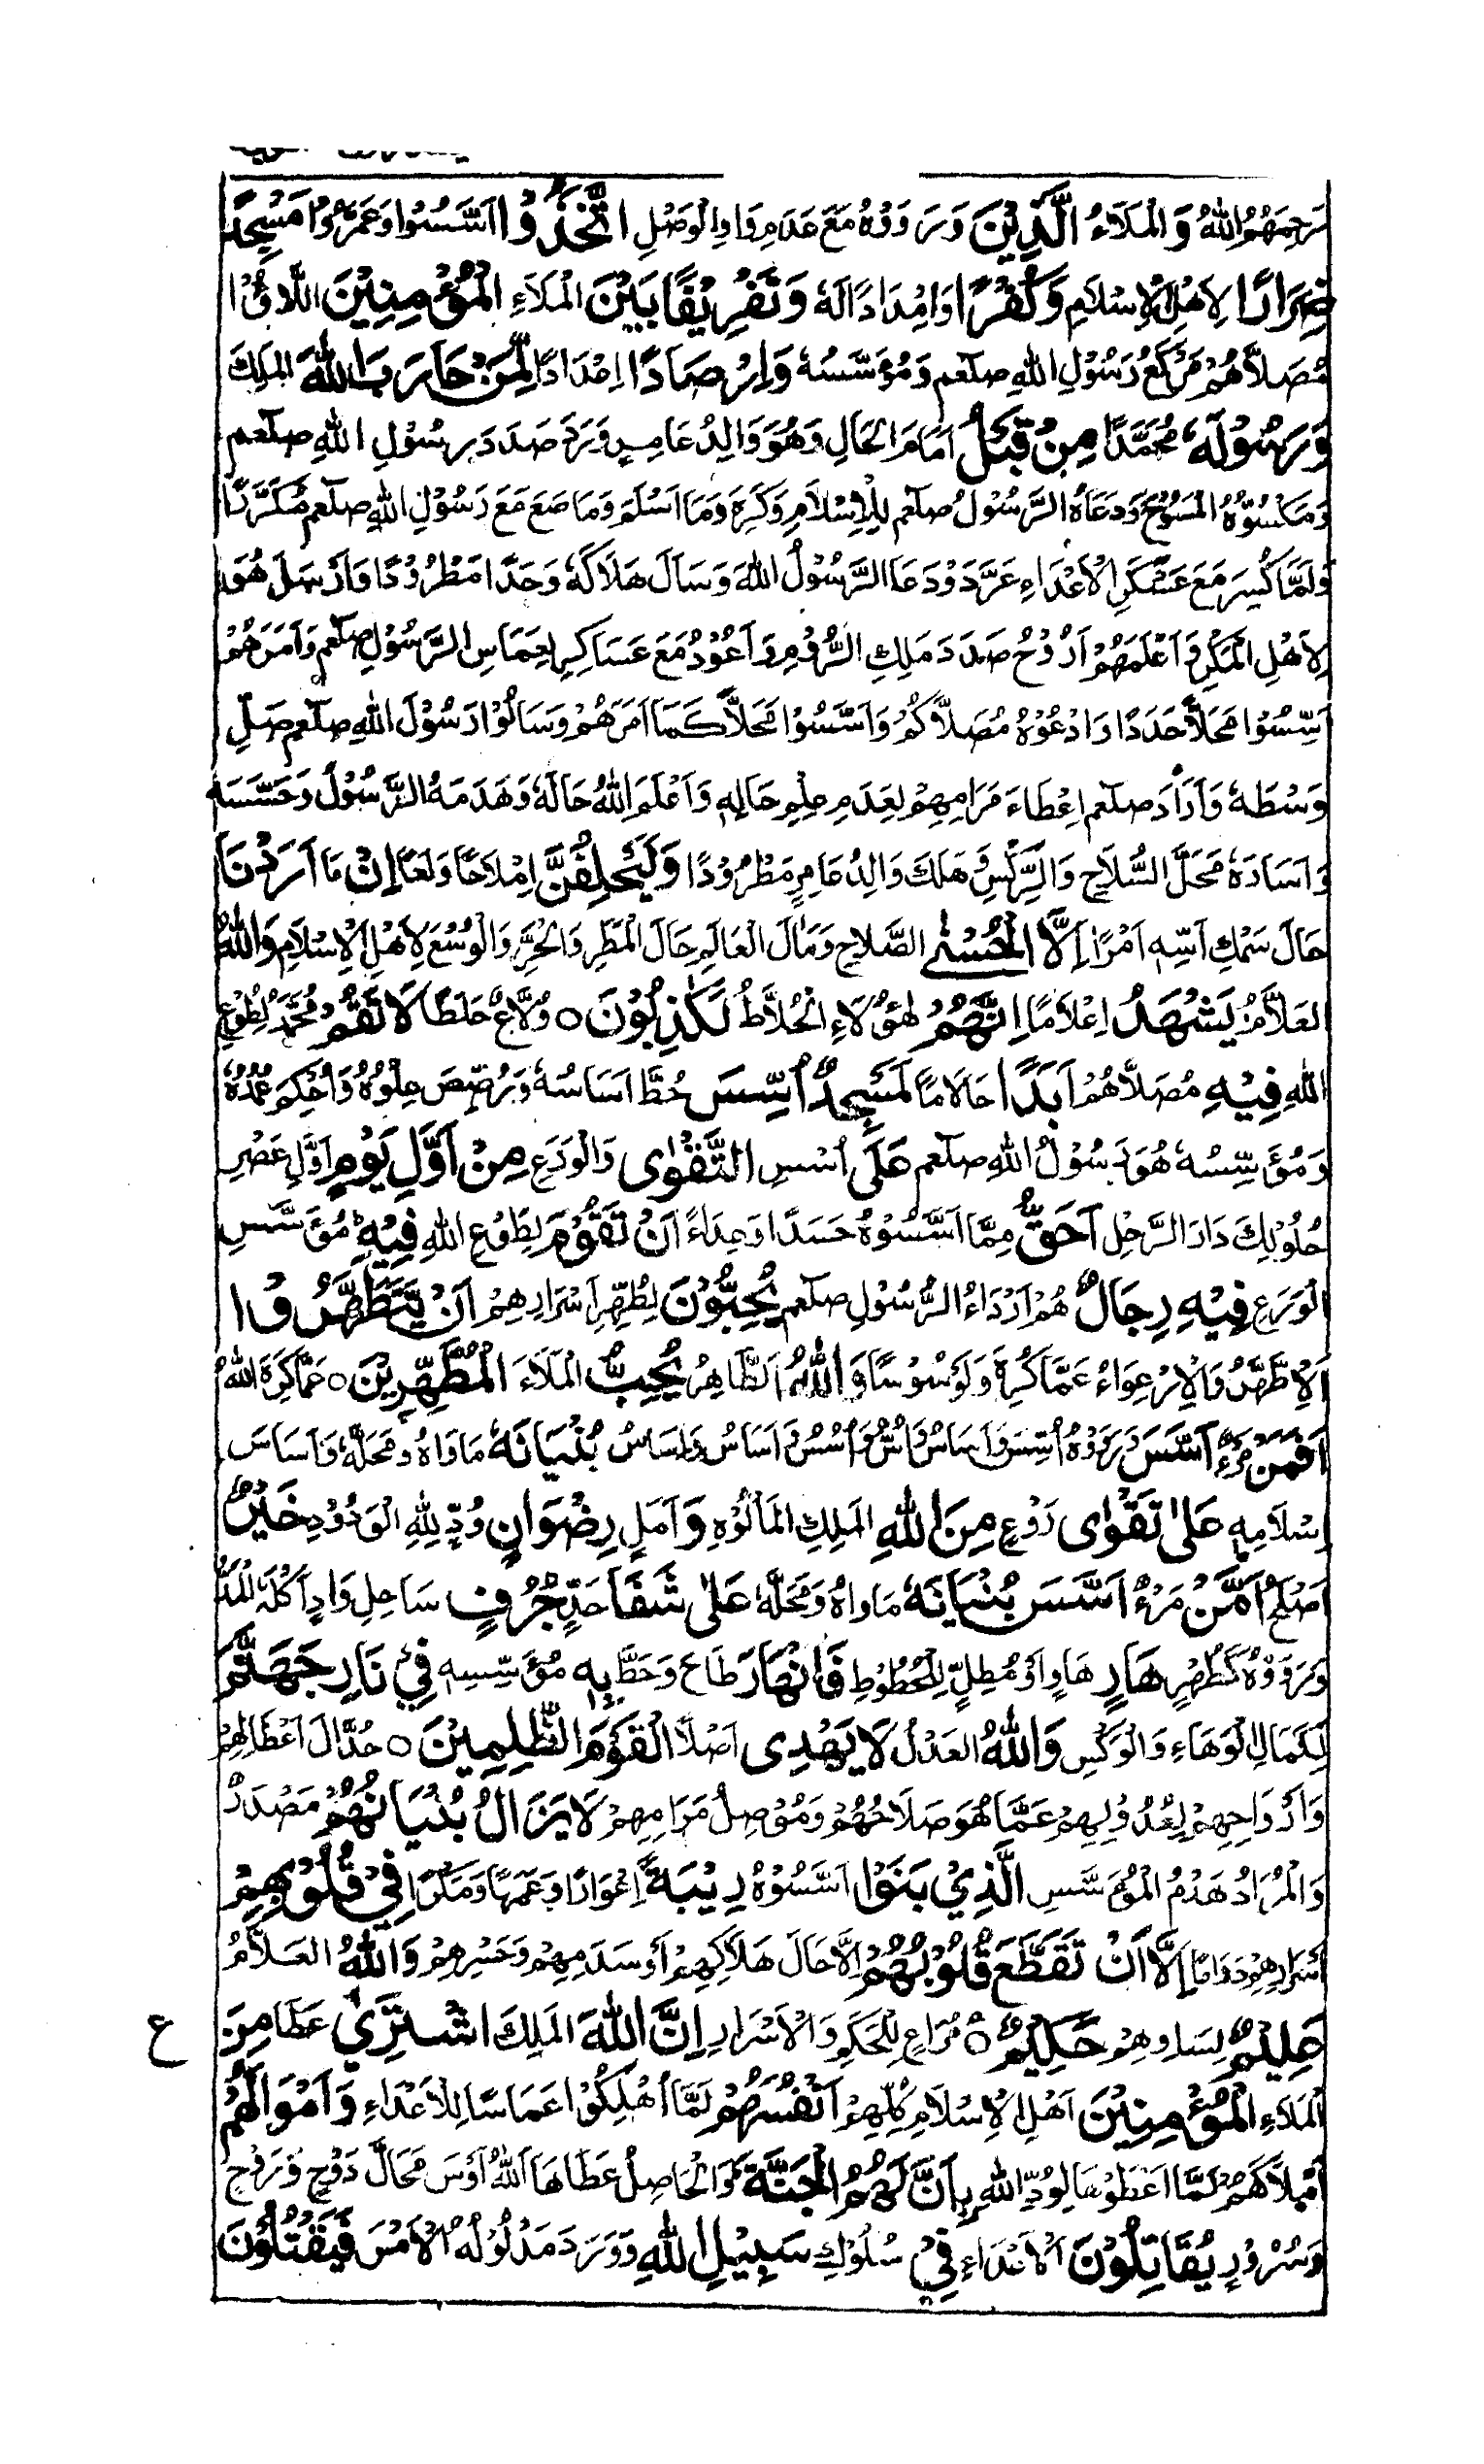 رَحِمَهُمُ اللهُ وَالْمَلَاءُ الَّذِيْنَ وَرَوَوْهُ مَعَ عَدَمِ وَاوِ الْوَصْلِ اتَّخَذُوْا اَسَّسُوْا وَعَمَّرُوْا مَسْجِدًا
ضِرَارًا لِاَهْلِ الْاِسْلَامِ وَكُفْرًا وَاِمْدَادًا لَهٗ وَتَفْرِيْقًا بَيْنَ الْمَلَاءِ الْمُؤْمِنِيْنَ
مُصَلَّاهُمْ رَسُوْلِ اللهِ صلعم وَمُؤَسَّسُهٗ وَاِرْصَادًا اِعْدَادًا لِّمَنْ حَارَبَ اللهَ الْمَلِكَ
وَرَسُوْلَهٗ مُحَمَّدًا مِنْ قَبْلُ اَمَامَ الْحَالِ وَهُوَ وَالِدُ عَامِرٍ وَرَدَ صَدَدَ رَسُوْلِ اللهِ صلعم
الْمُسُوْحُ وَدَعَاهُ الرَّسُوْلُ صلعم لِلْاِسْلَامِ وَكَرِهَ وَمَا اَسْلَمَ وَمَا صَعَ مَعَ رَسُوْلِ اللهِ صلعم مُكَرَّرًا
وَلَمَّا كُسِرَ مَعَ عَسْكَرِ الْاَعْدَاءِ عَرَّدَ وَدَعَا الرَّسُوْلُ اللهَ وَسَاَلَ هَلَاكَهٗ وَحَدًا مَطْرُوْدًا وَاَرْسَلَ هُوَ
لِاَهْلِ الْمَكْرِ وَاَعْلَمَهُمْ اَرُوْحُ صَدَدَ مَلِكِ الرُّوْمِ وَاَعُوْدُ مَعَ عَسَاكِرِ لِعِمَاسِ الرَّسُوْلِ صلعم وَاَمَرَهُمْ
اَسِّسُوْا مَحَلًّا حَدَدًا وَادْعُوْهُ مُصَلَّاكُمْ وَاَسَّسُوْا مَحَلًّا كَمَا اَمَرَهُمْ وَسَاَلُوْا رَسُوْلَ اللهِ صلعم صَلِّ
وَسْطَهٗ وَاَرَادَ صلعم اِعْطَاءَ مَرَامِهِمْ لِعَدَمِ عِلْمِ حَالِهِ وَاَعْلَمَ اللهُ حَالَهٗ وَهَدَمَهُ الرَّسُوْلُ
مَحَلَّ السُّلَاحِ وَالرِّكْسِ وَهَلَكَ وَالِدُ عَامِرٍ مَطْرُوْدًا وَلَيَحْلِفُنَّ وَلَعًا اِنْ مَا اَرَدْنَا
حَالَ سَمْكِ اُسِّهِ اَمْرًا اِلَّا الْحُسْنٰى الصَّلَاحَ وَمَاٰلَ الْعَالَمِ حَالَ الْمَطَرِ وَالْحَرِّ وَالْوُسْعَ لِاَهْلِ الْاِسْلَامِ وَاللهُ
الْعَلَّامُ يَشْهَدُ اِعْلَامًا اِنَّهُمْ لَهٰؤُلَاءِ لَكٰذِبُوْنَ ○ وُلَّاعٌ لَا تَقُمْ مُحَمَّدُ لِطَوْعِ
اللهِ فِيْهِ مُصَلَّاهُمْ اَبَدًا لَمَسْجِدٌ اُسِّسَ حُطَّ اَسَاسُهٗ وَرُصِّصَ عِلْوُهٗ وَاُحْكِمَ عُمُدُهٗ
وَمُؤَسِّسُهٗ هُوَ رَسُوْلُ اللهِ صلعم عَلَى اُسِّ التَّقْوٰى وَالْوَرَعِ مِنْ اَوَّلِ يَوْمٍ اَوَّلِ عَصْرِ
حُلُوْلِكَ دَارَ الرَّحْلِ اَحَقُّ مِمَّا اَسَّسُوْهُ حَسَدًا وَعِدَاءً اَنْ تَقُوْمَ لِطَوْعِ اللهِ فِيْهِ مُؤَسَّسِ
الْوَرَعِ فِيْهِ رِجَالٌ هُمْ اَرْدَاءُ الرَّسُوْلِ صلعم يُحِبُّوْنَ لِطُهْرِ اَسْرَارِهِمْ اَنْ يَّتَطَهَّرُوْا
الْاِطَّهَّرُ وَالْاِرْعِوَاءُ عَمَّا كَرِهَ وَلَوْ وَاللهُ الطَّاهِرُ يُحِبُّ الْمَلَاءَ الْمُطَّهِّرِيْنَ ○ عَمَّا كَرِهَ اللهُ
اَفَمَنْ مَرْءٌ اَسَّسَ وَرَوَوْهُ بُنْيَانَهٗ مَاوَاهُ وَمَحَلَّهٗ وَاَسَاسَ
اِسْلَامِهِ عَلٰى تَقْوٰى رَوْعٍ مِنَ اللهِ الْمَلِكِ الْمَاْلُوْهِ وَاَمَلِ رِضْوَانٍ وُدٍّ لِلّٰهِ الْوَدُوْدِ خَيْرٌ
اَصْلَحُ اَمْ مَّنْ مَرْءٌ اَسَّسَ بُنْيَانَهٗ مَاوَاهُ وَمَحَلَّهٗ عَلٰى شَفَا حَدِّ جُرُفٍ سَاحِلِ وَادٍ اَكَلَهُ الْمَدُّ
وَرَوَوْهُ كَطُهْرٍ هَارٍ هَاوٍ اَوْ مُطِلٍّ لِلْحُطُوْطِ فَانْهَارَ طَاحَ وَحَطَّ بِهِ مُؤَسِّسِهِ فِيْ نَارِ جَهَنَّمَ
لِكَمَالِ الْوَهَاءِ وَالْوَكْسِ وَاللهُ الْعَدْلُ لَا يَهْدِى اَصْلًا الْقَوْمَ الظّٰلِمِيْنَ ○
لِعُدُوْلِهِمْ عَمَّا هُوَ صَلَاحُهُمْ وَمُوْصِلُ مَرَامِهِمْ لَا يَزَالُ بُنْيَانُهُمْ مَصْدَرٌ
وَالْمُرَادُ هَدْمُ الْمُؤَسَّسِ الَّذِيْ بَنَوْا اَسَّسُوْهُ رِيْبَةً اِعْوَارًا وَعَمَهًا وَمَكْرًا فِيْ قُلُوْبِهِمْ
اَسْرَارِهِمْ دَوَامًا اِلَّا اَنْ تَقَطَّعَ قُلُوْبُهُمْ اِلَّا حَالَ هَلَاكِهِمْ اَوْ سَدَمِهِمْ وَحَسْرِهِمْ وَاللهُ الْعَلَّامُ
عَلِيْمٌ حَكِيْمٌ ○ مُرَاعٍ لِلْحِكَمِ وَالْاَسْرَارِ اِنَّ اللهَ الْمَلِكَ اشْتَرٰى عَطَا مِنَ
ع
الْمَلَاءِ الْمُؤْمِنِيْنَ اَهْلِ الْاِسْلَامِ كُلِّهِمْ اَنْفُسَهُمْ لَمَّا اُهْلِكُوْا عِمَاسًا لِلْاَعْدَاءِ وَاَمْوَالَهُمْ
اَمْلَاكَهُمْ لَمَّا اَعْطَوْهَا لِوُدِّ اللهِ بِاَنَّ لَهُمُ الْجَنَّةَ وَالْحَاصِلُ عَطَاهَا اللهُ اَوْسَ مَحَالَّ دَوْحٍ وَرَوْحٍ
وَسُرُوْرٍ يُقَاتِلُوْنَ الْاَعْدَاءَ فِيْ سُلُوْكِ سَبِيْلِ اللهِ وَوَرَدَ مَدْلُوْلُهُ الْاَمْرُ فَيَقْتُلُوْنَ